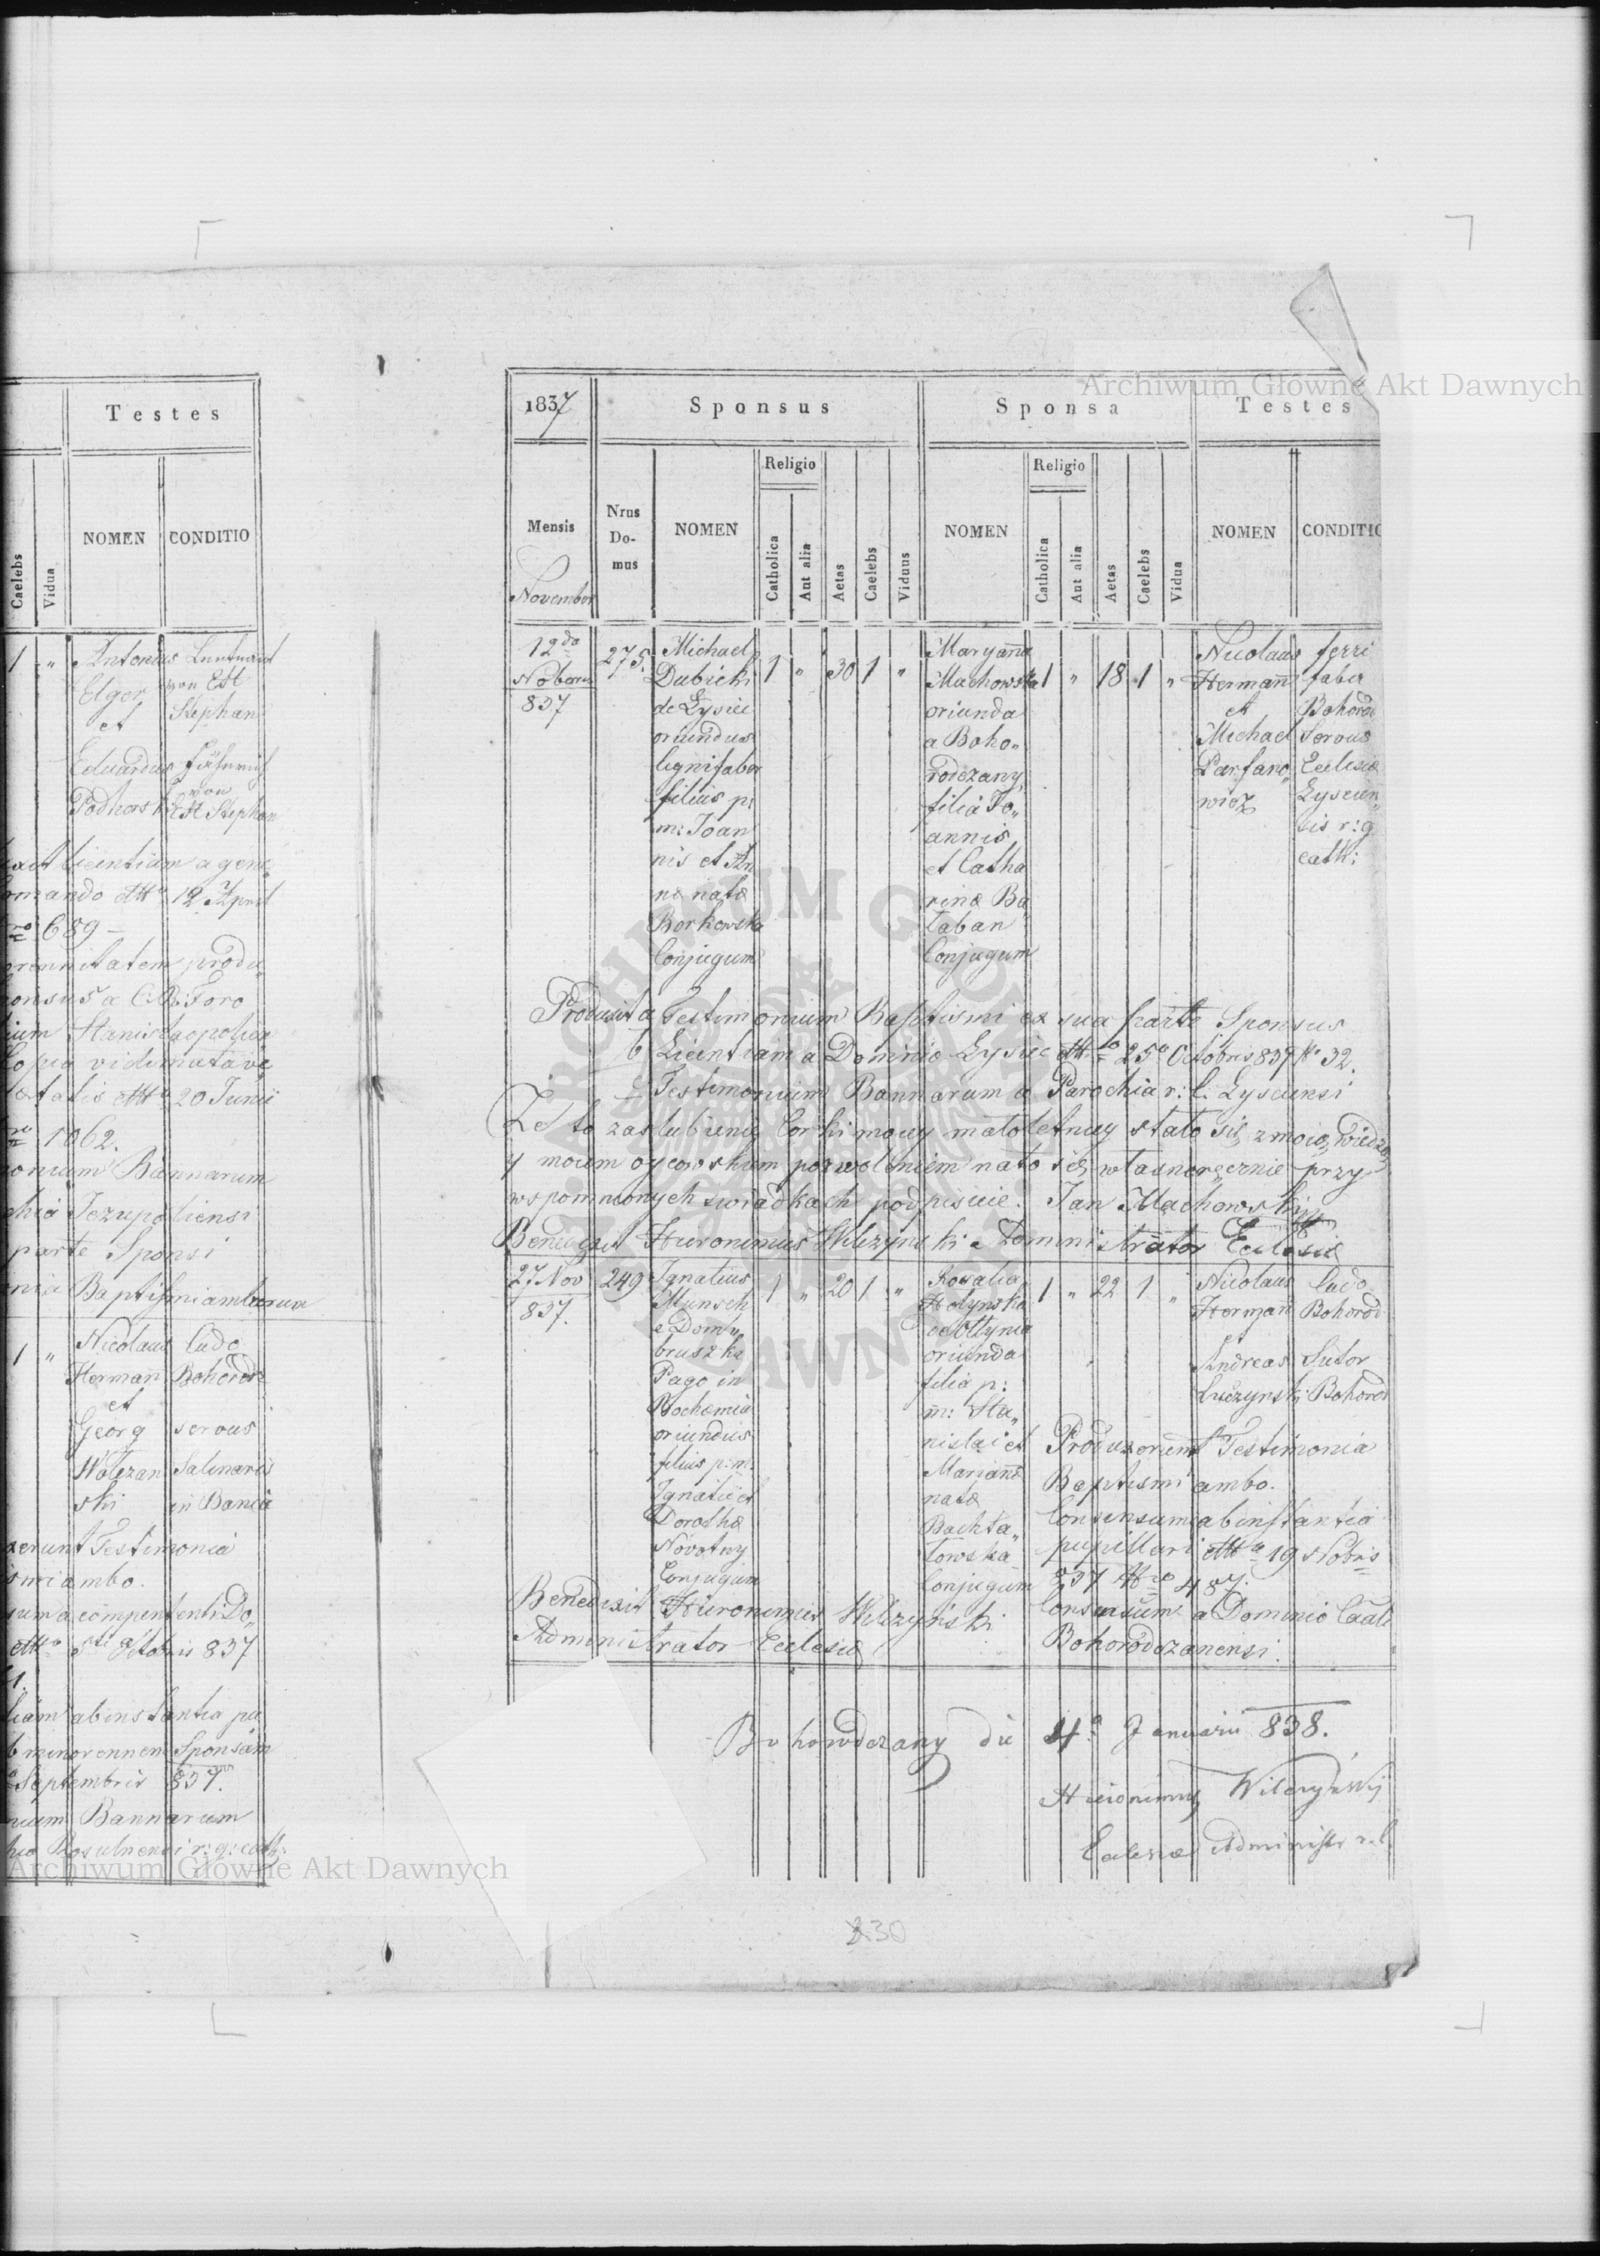 Archiwum Główne Akt Dawnych
Testes
Caelebs
Vidua
NOMEN
CONDITIO
1 „ Antonius
von Est
Elger Stephan
et
Eduardus
von
Est Stephan
licentiam a gene
12
689 —
produ
a C. R. Foro
Stanislaopolien
copia vidimata
20 Junii
1062.
Bannarum
Jezupoliensi
parte Sponsi
Baptismi amborum
1 „ Nicolaus Cudo
Hermañ Bohorod
et
Georg servus
Wolczan Salinaris
ski in Bania
Testimonia
ambo.
a competenti Do„
837
ab instantia pu
minorennem Sponsam
Septembris 837.
Bannarum
r: g: cath:
Archiwum Główne Akt Dawnych
1837
Sponsus
Sponsa
Testes
Mensis
November
Nrus
Do-
mus
NOMEN
Religio
Catholica
Aut alia
Aetas
Caelebs
Viduus
NOMEN
Religio
Catholica
Aut alia
Aetas
Caelebs
Vidua
NOMEN
CONDITIO
12do
Nobris
837
275.
Michael
Dubicki
de Lysiec
oriundus
lignifaber
filius p:
m: Joan
nis et An
næ natæ
Borkowska
Conjugum
1 „ 30 1 „
Maryanna
Machowska
oriunda
a Boho„
rodczany
filia Jo„
annis
et Catha
rinæ Ba„
taban
Conjugum
1 „ 18 1 „
Nicolaus
Hermañ
et
Michael
Parfano„
wicz
ferri
faber
Bohorod
Servus
Ecclesiæ
Lyscien„
sis r: g
cath:
Produxit a Testimonium Baptismi ex sua parte Sponsus
b Licentiam a Dominio Lysiec 25a Octobris 837 No 32.
c Testimonium Bannarum a Parochia r: l. Lyscensi
Ze to zaslubienie Corki mojey maloletniey stalo się z moią wiedzą
y moim oycowskim pozwoleniem na to się wlasnoręcznie przy
wspomnionych swiadkach podpisuie. Jan Machowski
Benedixit Hieronimus Wilczynski Administrator Ecclesiæ
27 Nov
837.
249
Ignatius
Munsch
e Domu„
bruszka
Pago in
Bochemia
oriundus
filius p: m.
Ignatii et
Dorothæ
Novotny
Conjugum
1 „ 20 1 „
Rosalia
Holynska
de Ottynia
oriunda
filia p:
m: Sta„
nislai et
Mariannæ
natæ
Bachta„
lowska
Conjugum
1 „ 22 1 „
Nicolaus
Hermañ
et
Andreas
Luczynski
Cudo
Bohorod
Sutor
Bohorod
Produxerunt Testimonia
Baptismi ambo.
Consensum ab instantia
pupillari 19 Nobris
837 Nro 487.
Consensum a Dominio Caali
Bohorodczanensi.
Benedixit Hieronimus Wilczyński
Administrator Ecclesiæ
Bohorodczany die 4a Januarii 838.
Hieronimus Wilczyński
Ecclesiæ Administr r. l.
230